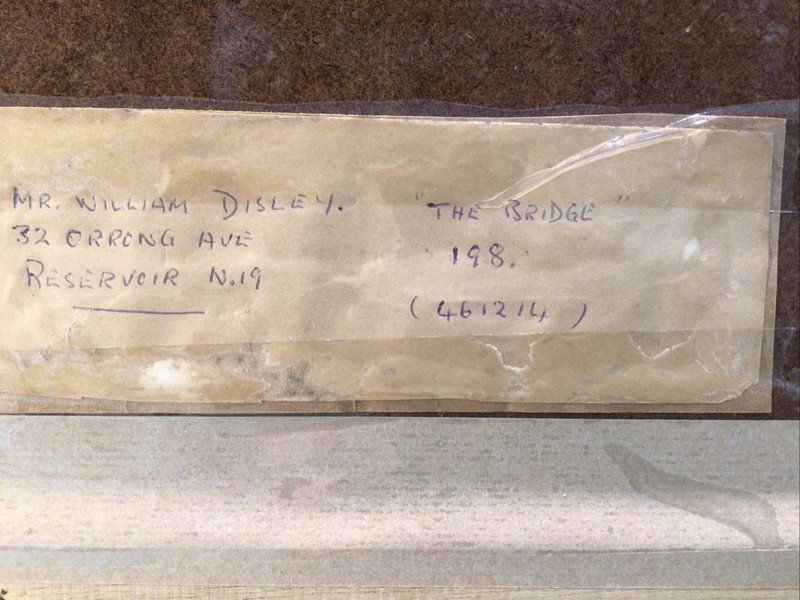 MR. WILLIAM DISLEY.
32 ORRONG AVE
RESERVOIR N.19
"THE BRIDGE"
198.
(461214)